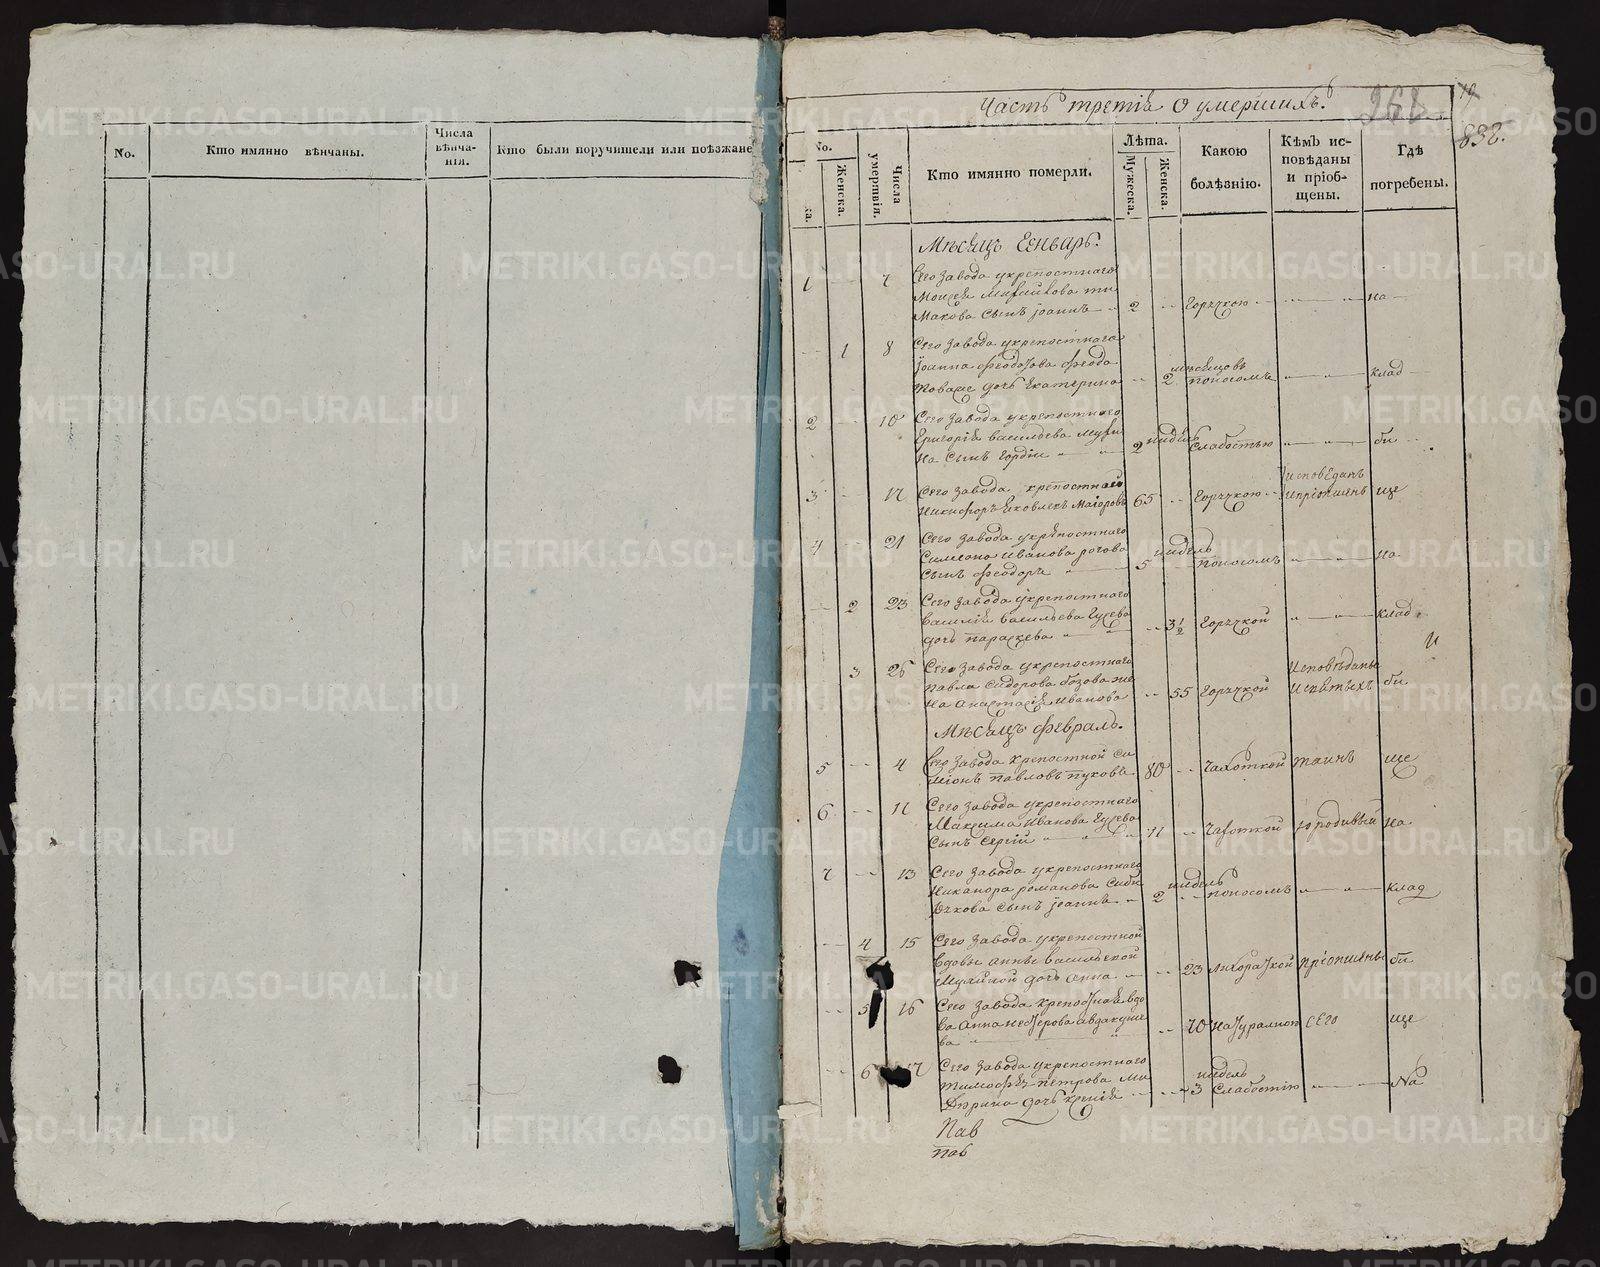 No.
Кто имянно вѣнчаны.
Числа
вѣнча-
нія.
Кто были поручители или поѣзжане
Часть третія О умершихъ.
268
19
832.
No.
Женска.
Числа
умертвія.
Кто имянно померли.
Лѣта.
Мужеска.
Женска.
Какою
болѣзнію.
Кѣмъ ис-
повѣданы
и пріоб-
щены.
Гдѣ
погребены.
Мѣсяцъ Генварь.
1 7 Сего завода укрепостнаго
Моисея
Макова сынъ Іоаннъ 2 Горячкою на
1 8 Сего завода укрепостнаго
Іоанна Феодо
дочь Екатерина 2 мѣсяцовъ поносомъ клад
2 10 Сего завода укрепостнаго
Григорія Васильева Мухи
на Сынъ Гордій 2 недѣль Слабостью би
3 17 Сего завода крепостнаго
Никифоръ Яковлевъ Маіоровъ 65 Горячкою Исповеданъ
ипріопщенъ ще
4 21 Сего завода укрепостнаго
Симеона Иванова рогова
Сынъ Феодоръ 5 недѣль поносомъ на
2 23 Сего завода укрепостнаго
Василія Васильева Гусева
дочь параскева 3½ Горячкой клад
3 26 Сего завода укрепостнаго
павла Сидорова бозова же
на Анастасія Иванова 55 Горячкой Исповѣданы
Исвятыхъ би
Мѣсяцъ февраль.
5 4 Сего завода крепостной Си
меонъ павловъ пуховъ 80 Чахоткой таинъ ще
6 11 Сего завода укрепостнаго
Максима Иванова Гусева
Сынъ Сергій 11 Чахоткой юродивый на
7 13 Сего завода укрепостнаго
Никанора романова Сиби
рчкова сынъ Іоаннъ 2 недѣль поносомъ клад
4 15 Сего завода укрепостной
вдовы анны васильевой
дочь анна 23 Лихорадкой пріопщены би
5 16 Сего завода крепостная вдо
ва Анна нестерова авдакуше
ва 70 Натурално СЕГО ще
6 17 Сего завода укрепостнаго
тимофея петрова Ми
дочь Ксенія 3 недѣль Слабостію На
Пав
пав
И
METRIKI.GASO-URAL.RU